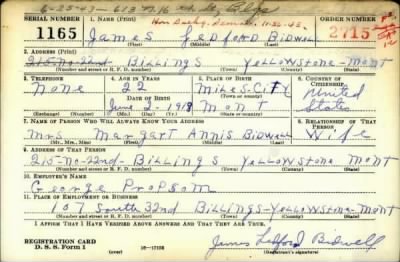 6-25-43-613 N.16 Blgs
Hon Discharg.
SERIAL NUMBER 1. NAME (Print) ORDER NUMBER
1165 James Ledford Bidwell 2715
(First) (Middle) (Last)
2. ADDRESS (Print)
215-No-22nd Billings Yellowstone-Mont
(Number and street or R. F. D. number) (Town) (County) (State)
3. TELEPHONE 4. AGE IN YEARS 5. PLACE OF BIRTH 6. COUNTRY OF CITIZENSHIP
None 22 Miles-City United States
DATE OF BIRTH (Town or county)
June 2, 1918 Mont
(Exchange) (Number) (Mo.) (Day) (Yr.) (State or country)
7. NAME OF PERSON WHO WILL ALWAYS KNOW YOUR ADDRESS 8. RELATIONSHIP OF THAT PERSON
Mrs Margart Annis Bidwell Wife
(Mr., Mrs., Miss) (First) (Middle) (Last)
9. ADDRESS OF THAT PERSON
215-No-22nd-Billings Yellowstone Mont
(Number and street or R. F. D. number) (Town) (County) (State)
10. EMPLOYER'S NAME
George Propsom
11. PLACE OF EMPLOYMENT OR BUSINESS
107 South 32nd Billings-Yellowstone-Mont
(Number and street or R. F. D. number) (Town) (County) (State)
I AFFIRM THAT I HAVE VERIFIED ABOVE ANSWERS AND THAT THEY ARE TRUE.
REGISTRATION CARD
D. S. S. Form 1 (over) 16-17105 James Ledford Bidwell
(Registrant's signature)